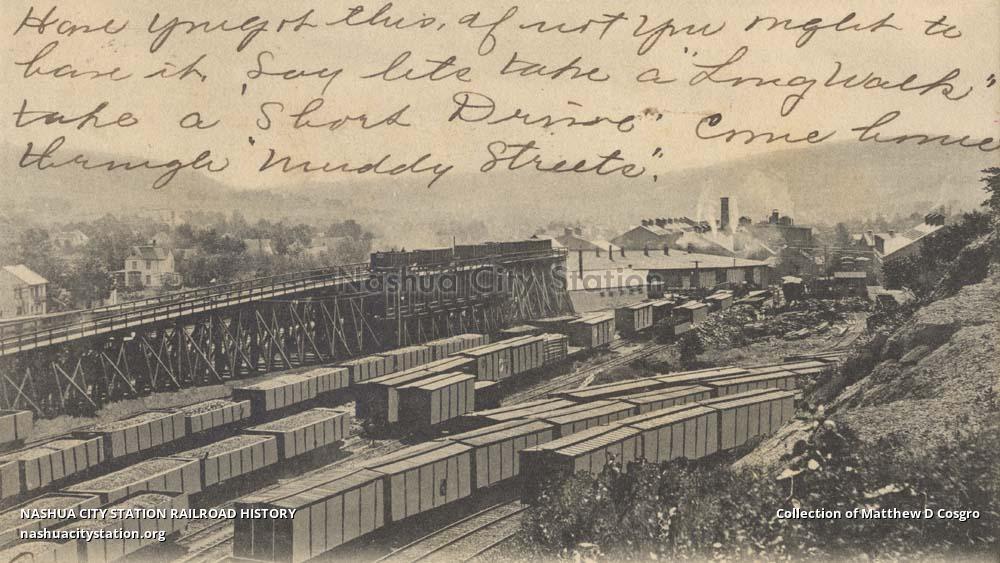 Have you got this, if not you might to
have it. Say lets take a "Long Walk"
take a "Short Drive" Come home
through "Muddy Streets".
Nashua City Station
NASHUA CITY STATION RAILROAD HISTORY
nashuacitystation.org
Collection of Matthew D Cosgro